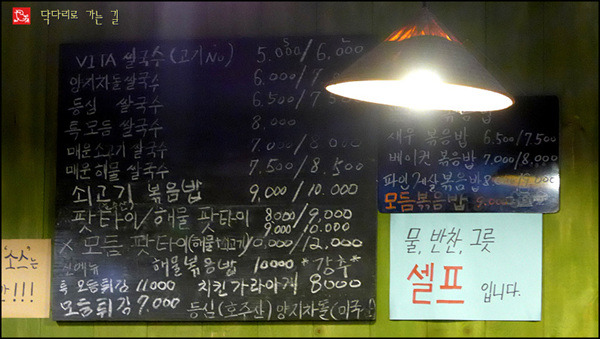 닥다리로 가는 길
VITA 쌀국수 (고기 No) 5.000/6.000
양지차돌쌀국수 6.000/
등심 쌀국수 6.500/7.500
특 모듬 쌀국수 8.000
매운소고기 쌀국수 7.000 / 8.000
매운해물 쌀국수 7.500 / 8.500
쇠고기 볶음밥 9.000/10.000
팟타이/해물 팟타이 8000/9.000
9000/10.000
X 모듬 팟타이(해물+고기) /12.000
신메뉴 해물볶음밥 10000 *강추*
특 모듬튀김 11.000 치킨가라아게 8000
모듬튀김 7.000 등심(호주산) 양지차돌(미국
새우 볶음밥 6.500/7.500
베이컨 볶음밥 7.000/8.000
파인 볶음밥 8.000
모듬볶음밥 9.000
"소스"는
!!!
물, 반찬, 그릇
셀프 입니다.